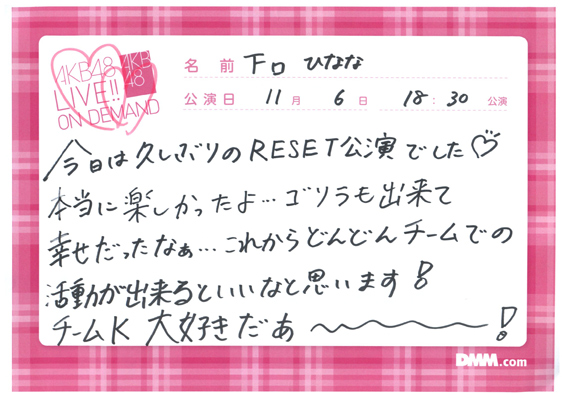 AKB48
LIVE!!
ON DEMAND
AKB
48
名 前 下口 ひなな
公演日 11 月 6 日 18 : 30 公演
今日は久しぶりのRESET公演でした♡
本当に楽しかったよ…ゴリラも出来て
幸せだったなぁ…これからどんどんチームでの
活動が出来るといいなと思います!
チームK 大好きだあ〜〜〜!
DMM.com